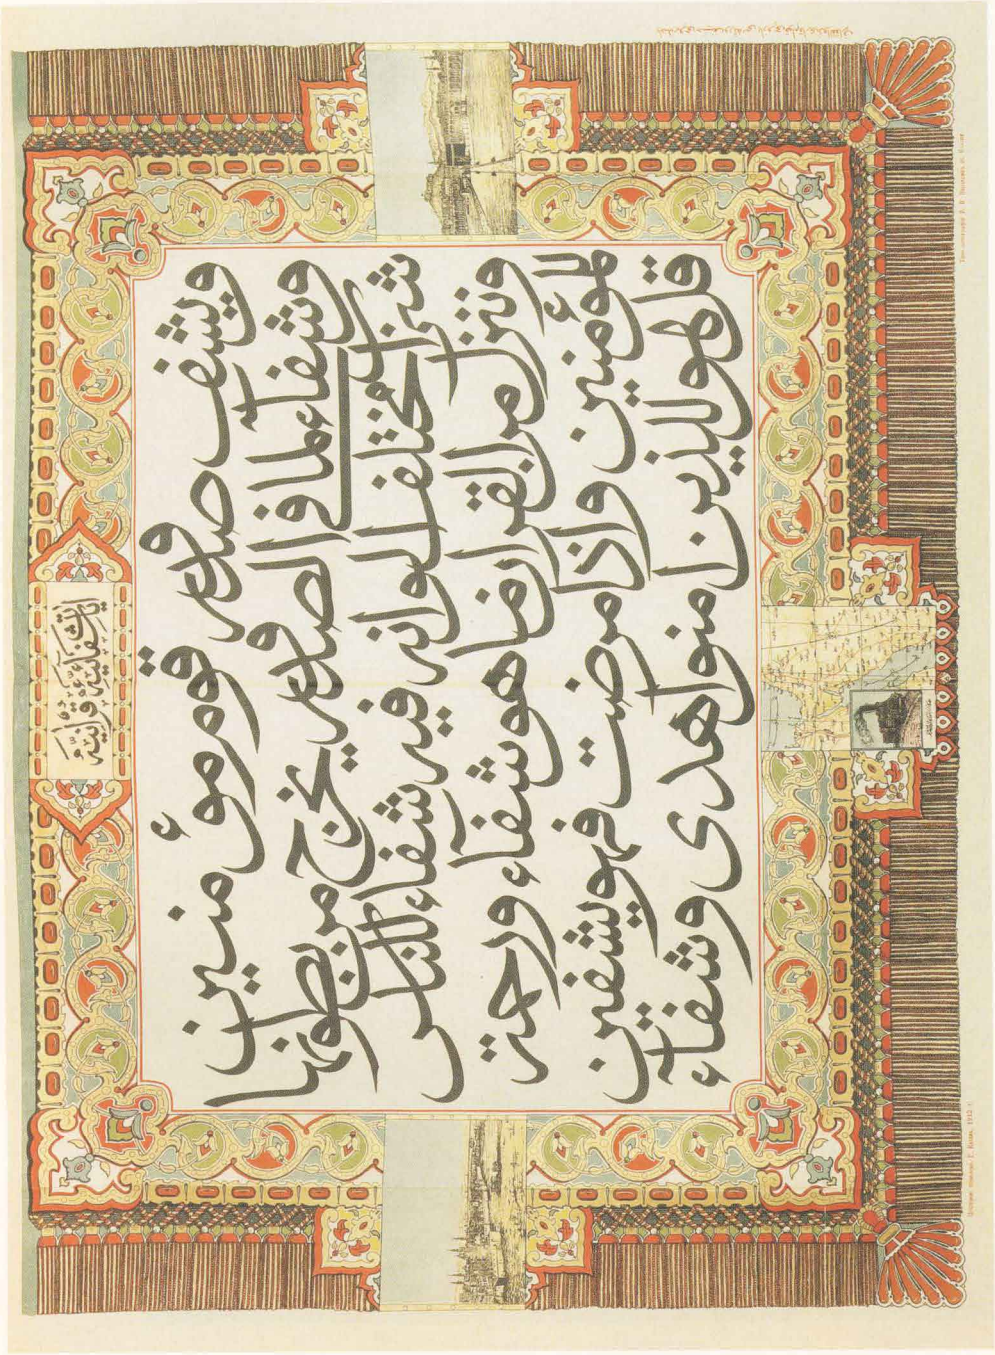 ايات شفائيه قرانيه
ويشف صدور قوم مؤمنين
وشفآء لما فى الصدور يخرج من بطونها
شراب مختلف الوانه فيه شفآء للناس
وننزل من القران ما هو شفآء ورحمة
للمؤمنين واذا مرضت فهو يشفين
قل هو للذين امنوا هدى وشفآء